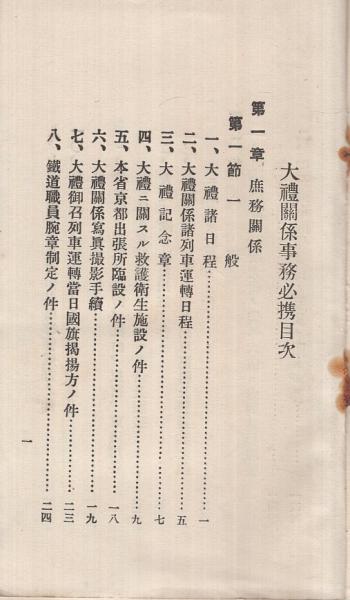 大禮關係事務必携目次
第一章 庶務關係
第一節 一般
一、大禮諸日程………一
二、大禮關係諸列車運轉日程………五
三、大禮記念章………七
四、大禮ニ關スル救護衛生施設ノ件………九
五、本省京都出張所臨設ノ件………一八
六、大禮關係寫眞撮影手續………一九
七、大禮御召列車運轉當日國旗揭揚方ノ件………二三
八、鐵道職員腕章制定ノ件………二四
一